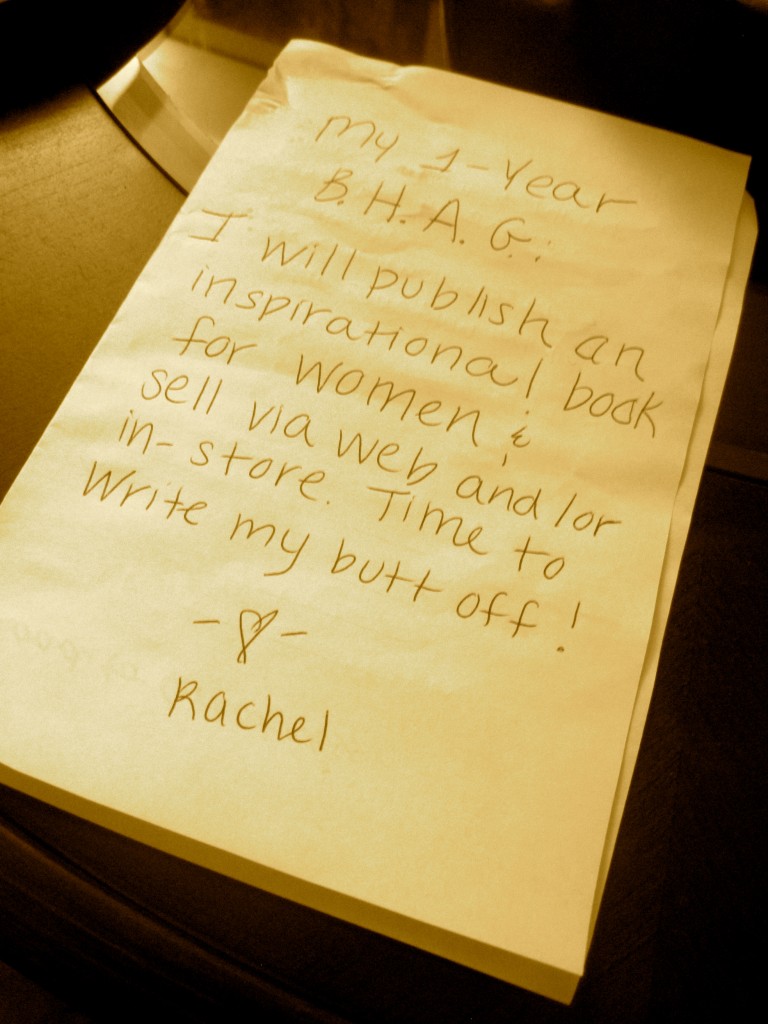 My 1-Year
B.H.A.G.:
I will publish an
inspirational book
for women &
sell via web and/or
in-store. Time to
write my butt off!
-♡-
Rachel